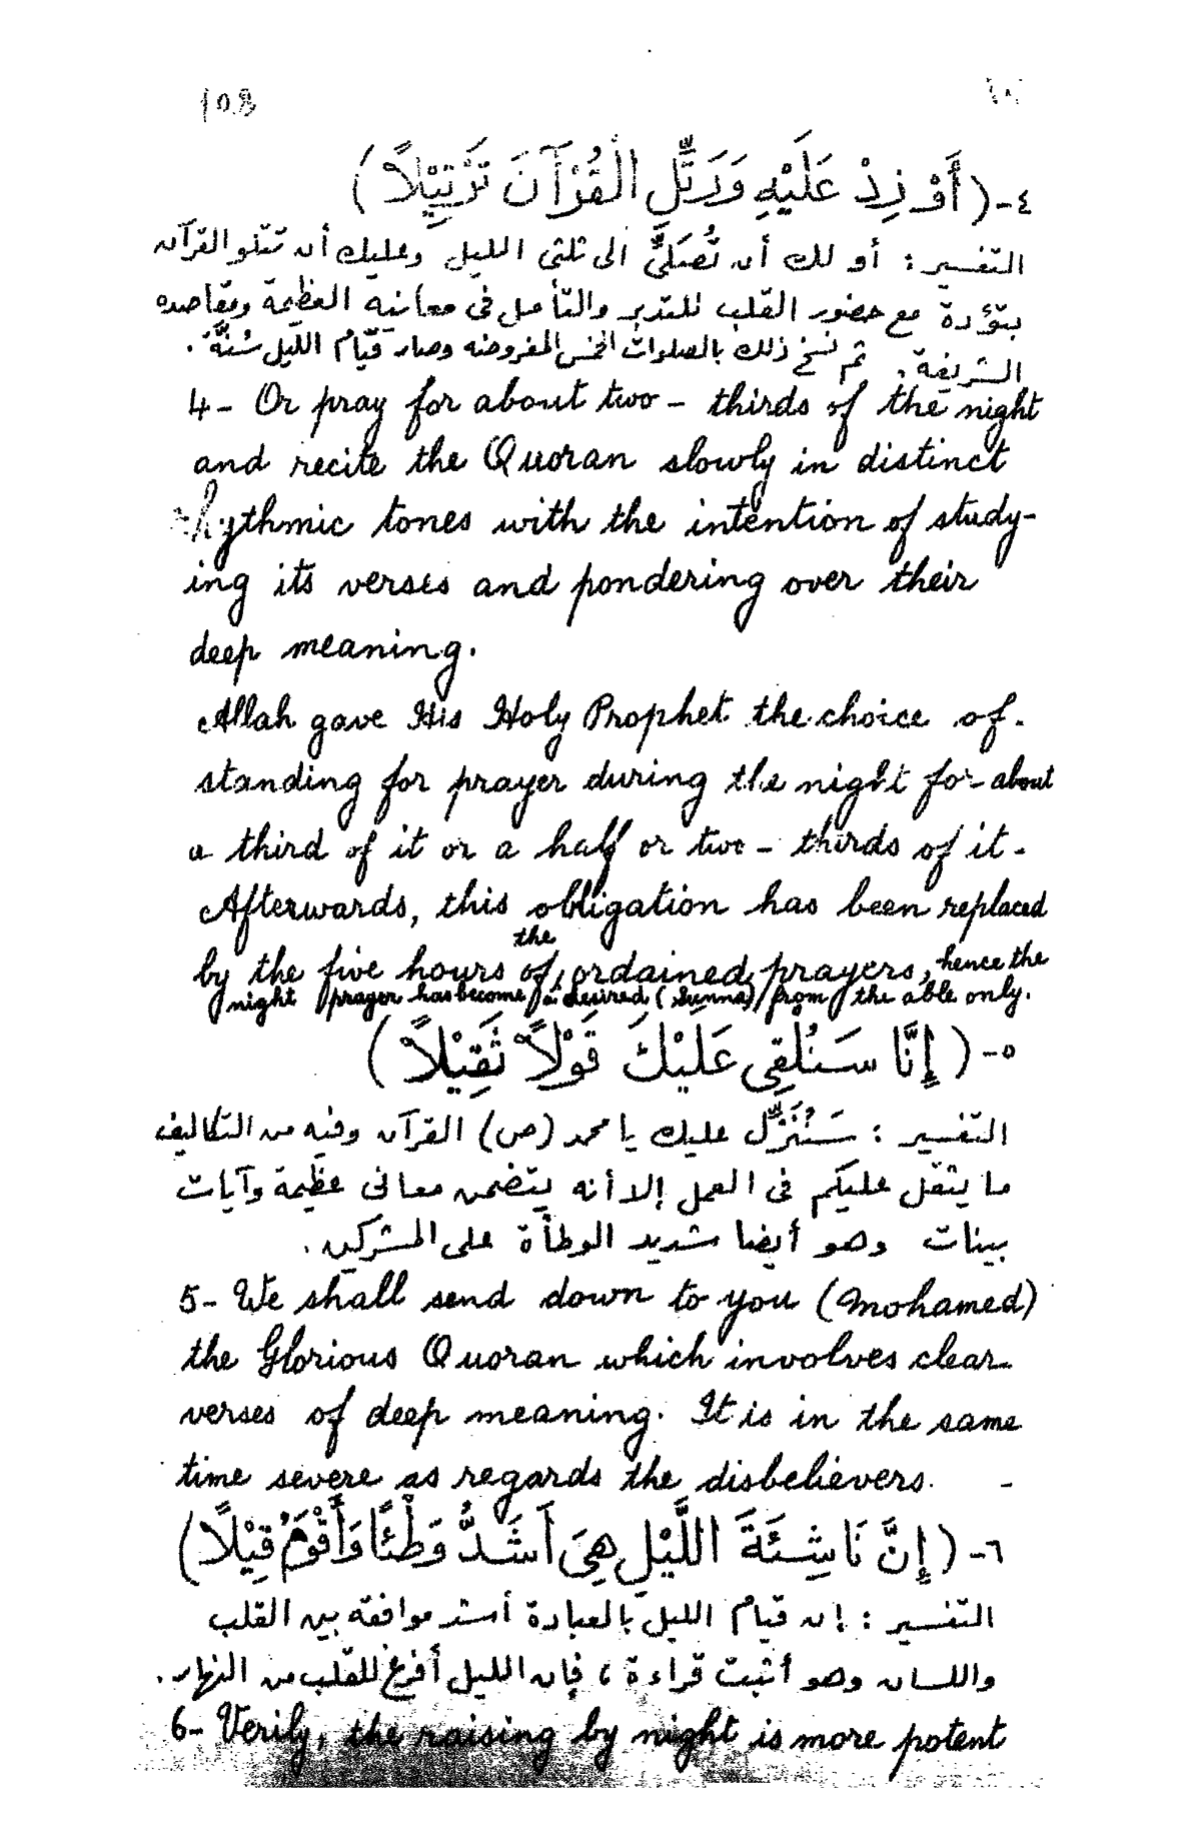 108
٤- (أَوْ زِدْ عَلَيْهِ وَرَتِّلِ الْقُرْآنَ تَرْتِيْلاً)
التفسير : أو لك أن تُصَلِّىَ الى ثلثى الليل وعليك أن تتلو القرآن
بتؤدة مع حضور القلب للتدبر والتأمل فى معانيه العظيمة ومقاصده
الشريفة . ثم نسخ ذلك بالصلوات الخمس المفروضه وصار قيام الليل سُنَّة .
4- Or pray for about two - thirds of the night
and recite the Quoran slowly in distinct
rhythmic tones with the intention of study-
ing its verses and pondering over their
deep meaning.
Allah gave His Holy Prophet the choice of
standing for prayer during the night for about
a third of it or a half or two - thirds of it.
Afterwards, this obligation has been replaced
by the five hours of the ordained prayers, hence the
night prayer has become a desired (Sunna) from the able only.
٥- (إِنَّا سَنُلْقِى عَلَيْكَ قَوْلاً ثَقِيْلاً)
التفسير : سَنُنَزِّل عليك يا محمد (ص) القرآن وفيه من التكاليف
ما يثقل عليكم فى العمل إلا أنه يتضمن معانى عظيمة وآيات
بينات وهو أيضا شديد الوطأة على المشركين .
5- We shall send down to you (Mohamed)
the Glorious Quoran which involves clear
verses of deep meaning. It is in the same
time severe as regards the disbelievers.
٦- (إِنَّ نَاشِئَةَ اللَّيْلِ هِىَ أَشَدُّ وَطْئًا وَأَقْوَمُ قِيْلاً)
التفسير : إن قيام الليل بالعبادة أشد موافقه بين القلب
واللسان وهو أثبت قراءة ، فإن الليل أفرغ للقلب من النهار .
6- Verily, the raising by night is more potent